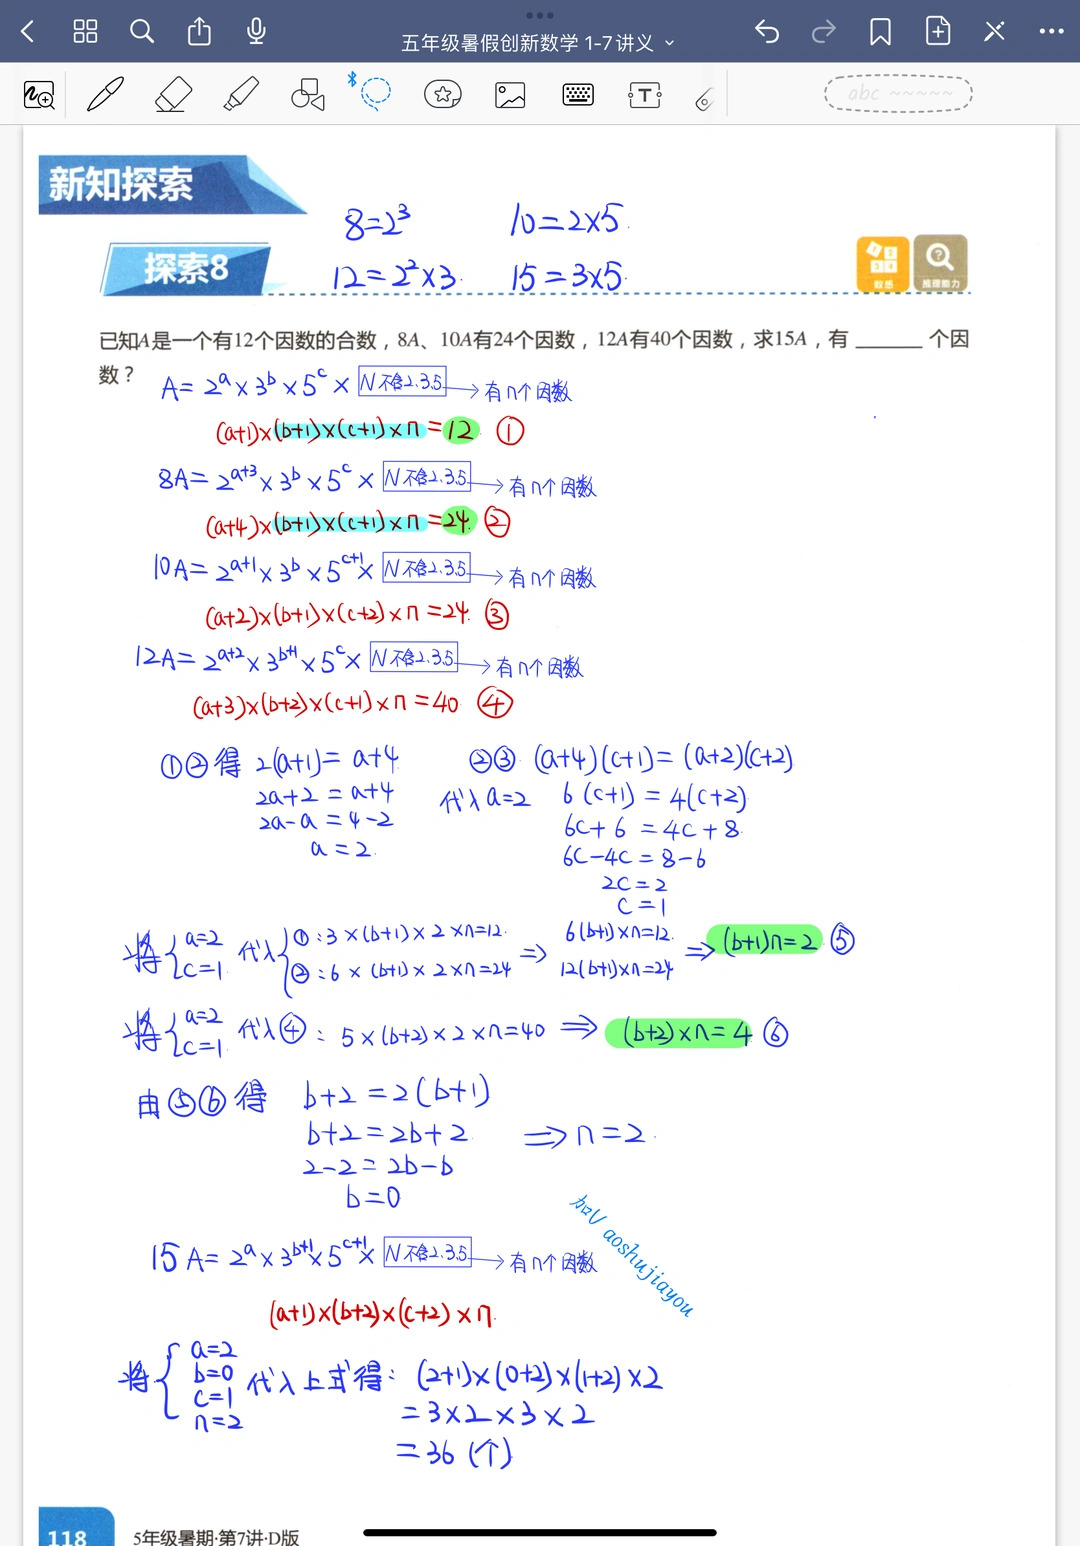 五年级暑假创新数学 1-7讲义
abc ~~~~~
新知探索
8=2³ 10=2×5
探索8
12=2²×3 15=3×5
数感 推理能力
已知A是一个有12个因数的合数，8A、10A有24个因数，12A有40个因数，求15A，有 ______ 个因
数？
A=2^a×3^b×5^c× N不含2.3.5 → 有n个因数
(a+1)×(b+1)×(c+1)×n=12 ①
8A=2^(a+3)×3^b×5^c× N不含2.3.5 → 有n个因数
(a+4)×(b+1)×(c+1)×n=24 ②
10A=2^(a+1)×3^b×5^(c+1)× N不含2.3.5 → 有n个因数
(a+2)×(b+1)×(c+2)×n=24 ③
12A=2^(a+2)×3^(b+1)×5^c× N不含2.3.5 → 有n个因数
(a+3)×(b+2)×(c+1)×n=40 ④
①②得 2(a+1)=a+4 ②③ (a+4)(c+1)=(a+2)(c+2)
2a+2=a+4 代入a=2 6(c+1)=4(c+2)
2a-a=4-2 6c+6=4c+8
a=2 6c-4c=8-6
2c=2
c=1
将{a=2 代入{①:3×(b+1)×2×n=12 ⇒ 6(b+1)×n=12 ⇒ (b+1)n=2 ⑤
c=1 ②:6×(b+1)×2×n=24 12(b+1)×n=24
将{a=2 代入④: 5×(b+2)×2×n=40 ⇒ (b+2)×n=4 ⑥
c=1
由⑤⑥得 b+2=2(b+1)
b+2=2b+2 ⇒ n=2
2-2=2b-b
b=0
加V aoshujiayou
15A=2^a×3^(b+1)×5^(c+1)× N不含2.3.5 → 有n个因数
(a+1)×(b+2)×(c+2)×n
将{a=2
b=0 代入上式得: (2+1)×(0+2)×(1+2)×2
c=1 =3×2×3×2
n=2
=36(个)
118 5年级暑期·第7讲·D版